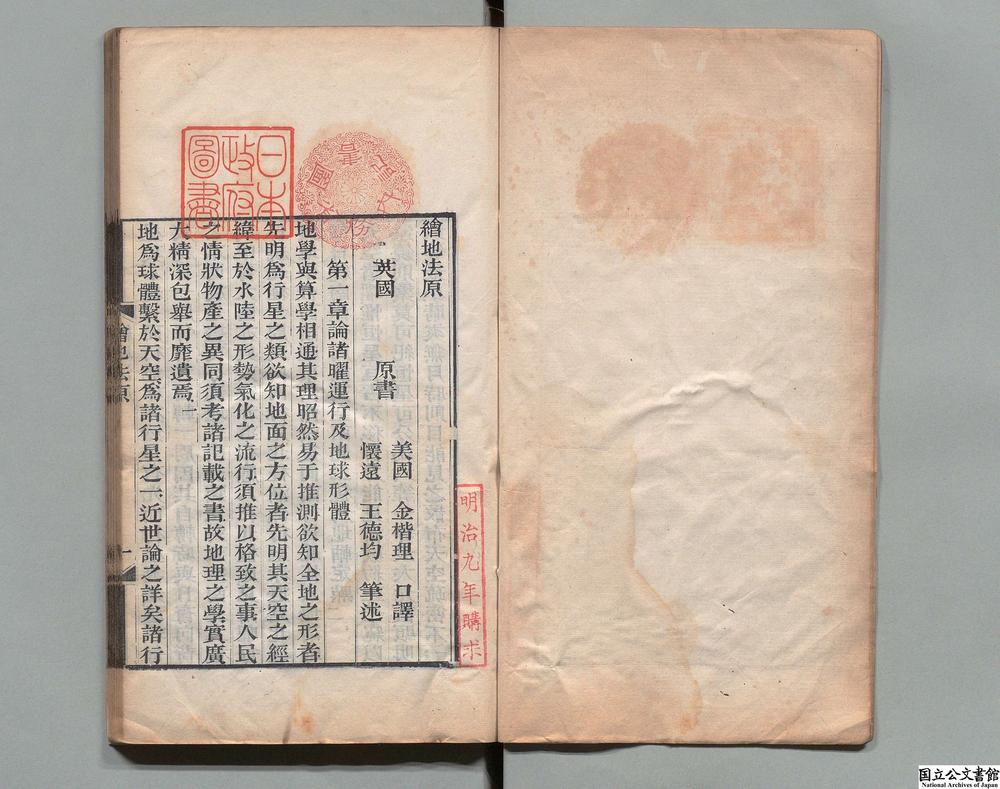 繪地法原
英國 原書
美國 金楷理 口譯
懷遠 王德均 筆述
第一章論諸曜運行及地球形體
地學與算學相通其理昭然易于推測欲知全地之形者
先明爲行星之類欲知地面之方位者先明其天空之經
緯至於水陸之形勢氣化之流行須推以格致之事人民
之情狀物產之異同須考諸記載之書故地理之學實廣
大精深包舉而靡遺焉
地爲球體繫於天空爲諸行星之一近世論之詳矣諸行
繪地法原
一
日本
政府
圖書
明治九年購求
国立公文書館
National Archives of Japan